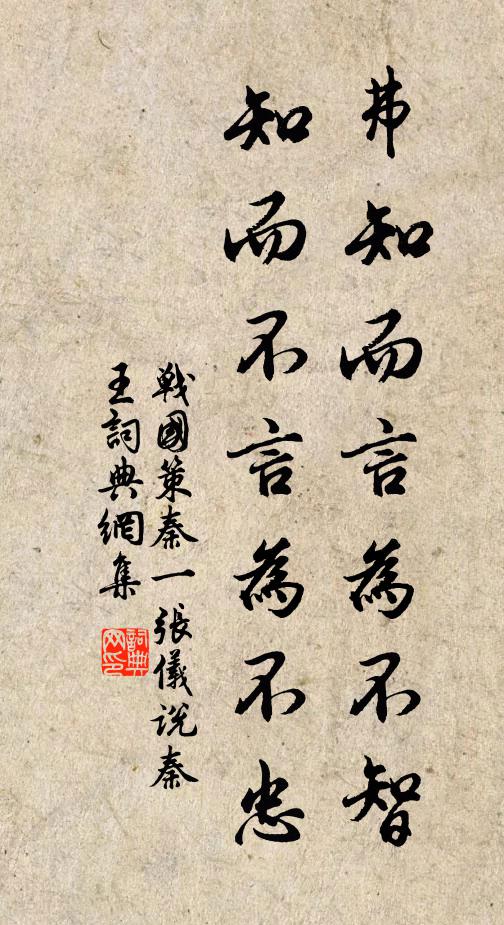 弗知而言為不智
知而不言為不忠
戰國策秦一張儀説秦
王詞典網集
詞典网印